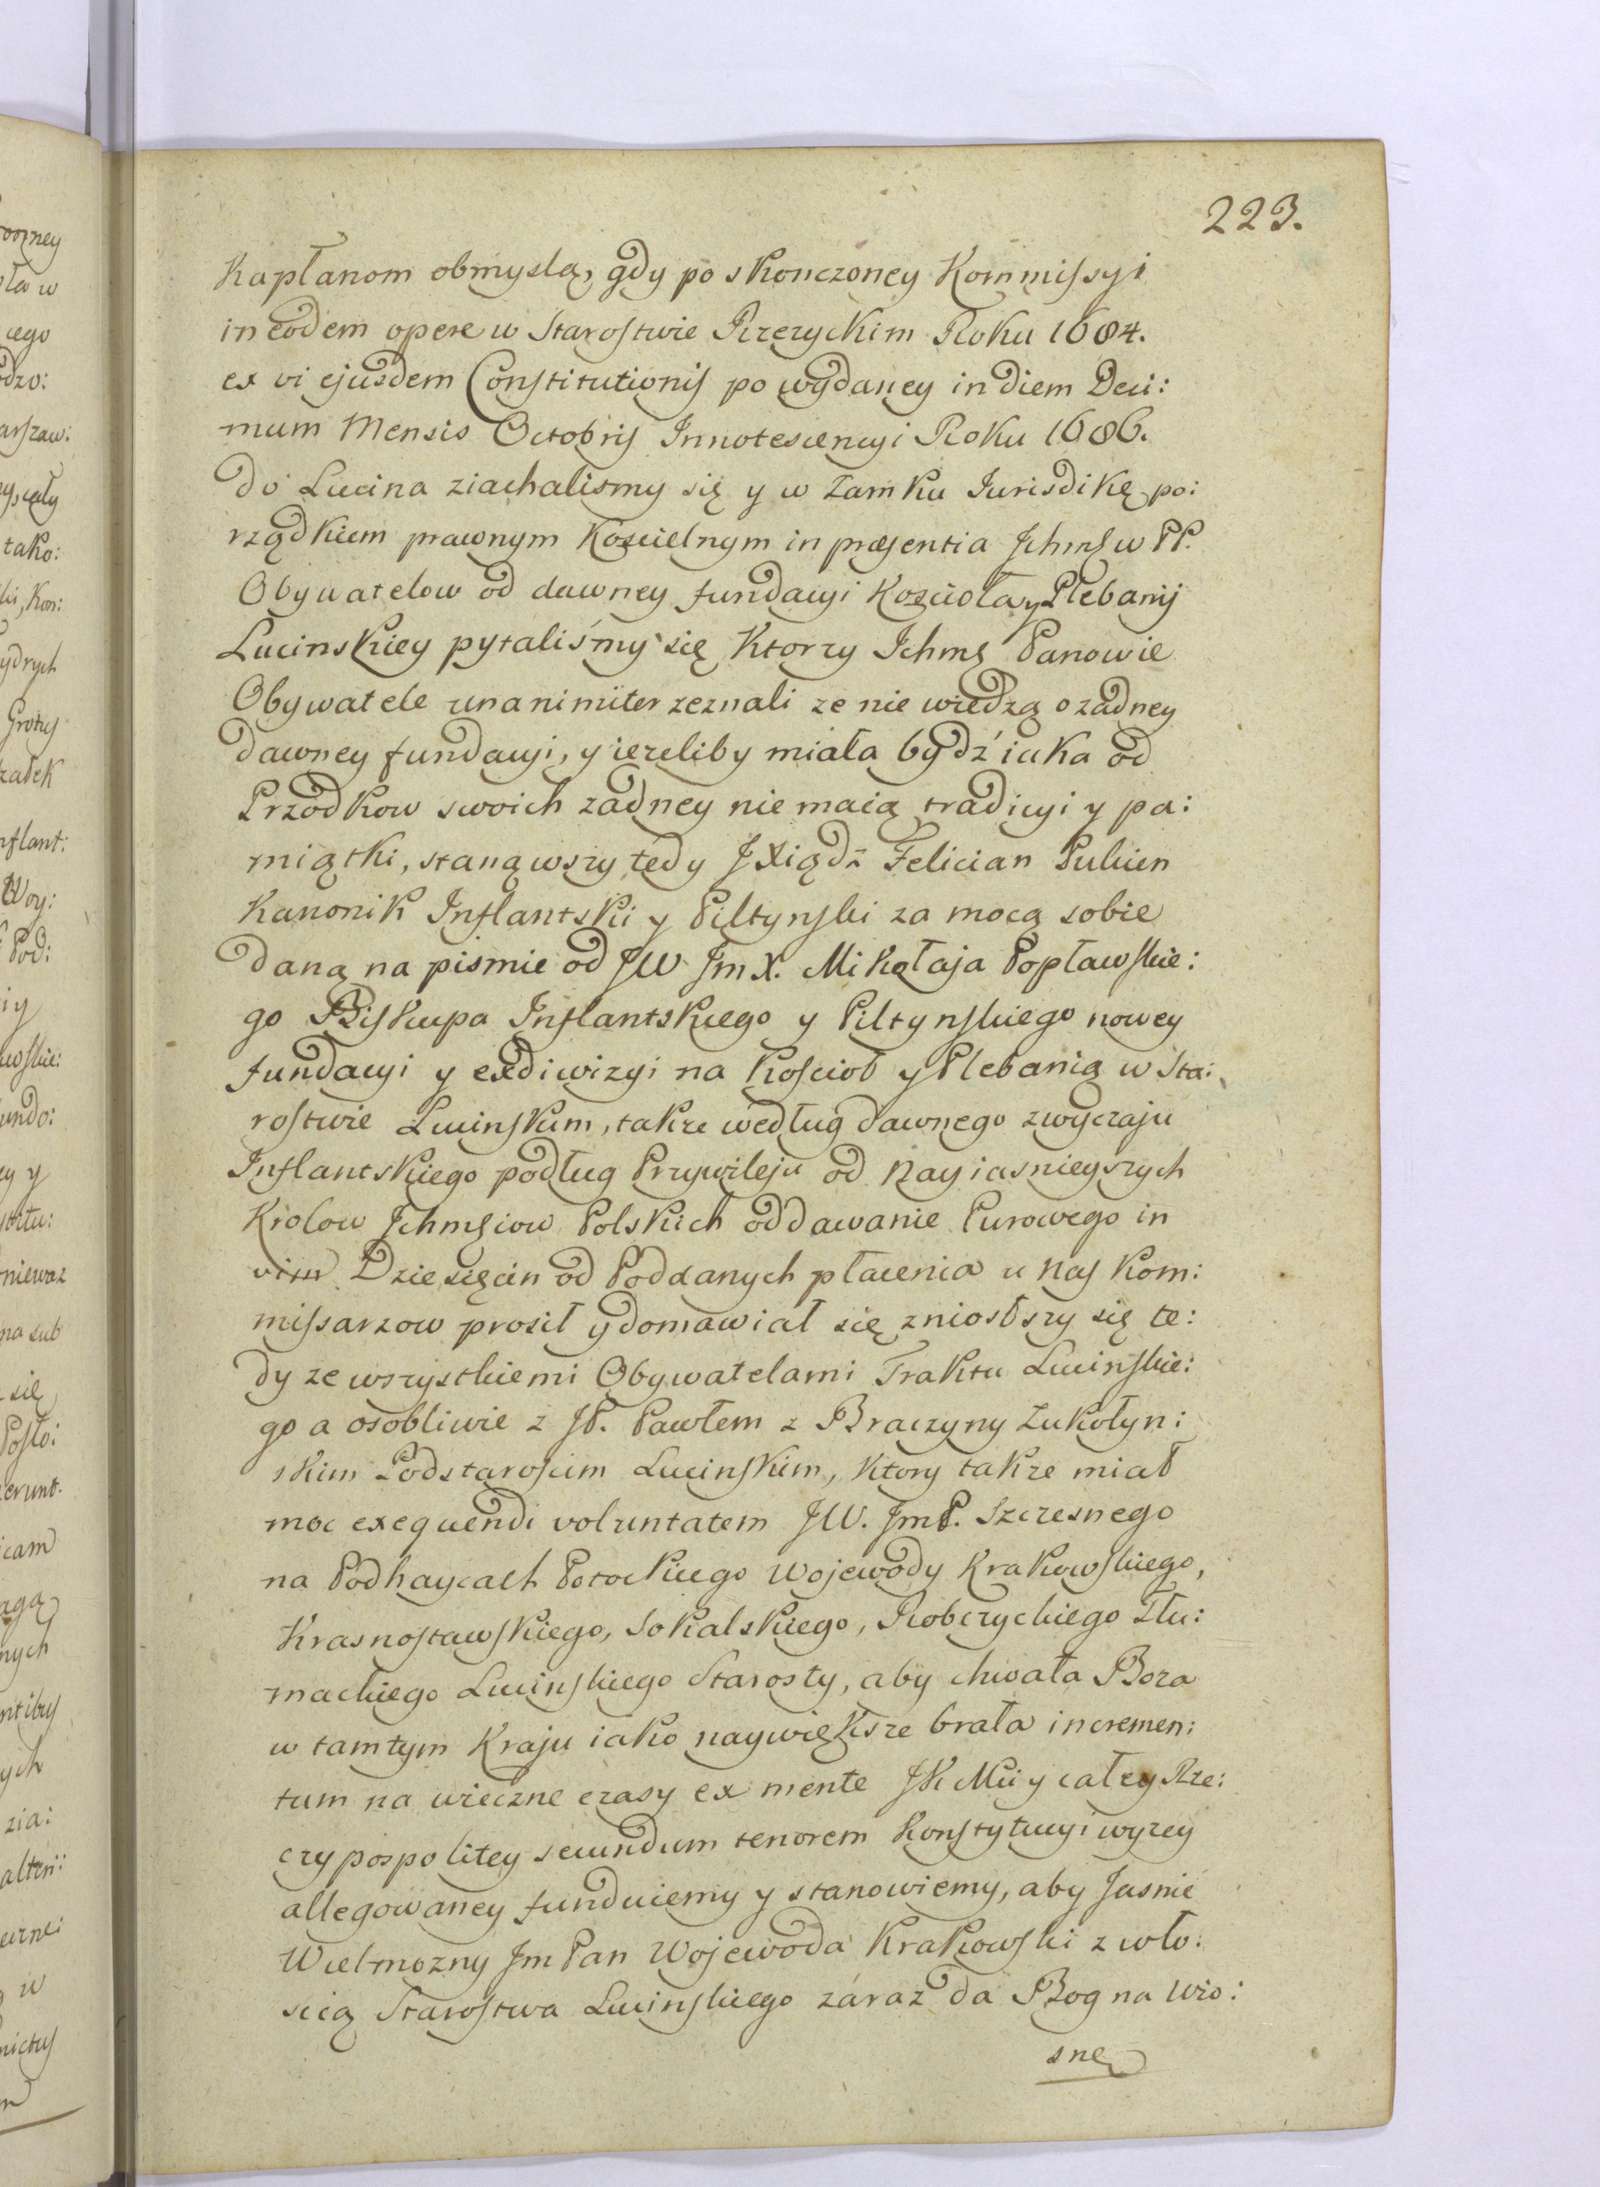 223.
Kapłanom obmyslą, gdy po skonczoney Kommissyi
in eodem opere w Starostwie Rzezyckim Roku 1684.
ex vi ejusdem Constitutionis po wydaney in diem Deci:
mum Mensis Octobris Innotescencyi Roku 1686.
do Lucina ziachalismy się y w Zamku Iurisdikę po:
rządkiem prawnym Koscielnym in præsentia Ichmś w PP.
Obywatelow od dawney fundacyi Koszcioła y Plebanij
Lucinskiey pytaliśmy się Ktorzy Ichmś Panowie
Obywatele unanimiter zeznali ze nie wiedzą o zadney
dawney fundacyi, y iezeliby miała bydź iaka od
Przodkow swoich zadney nie maią tradicyi y pa:
miątki, stanąwszy tedy JXiądz Felician Pulien
Kanonik Inflantski y Piltynski za mocą sobie
daną na pismie od JW Jm X. Mikołaja Popławskie:
go Biskupa Inflantskiego y Piltynskiego nowey
fundacyi y exdiwizyi na Kościoł y Plebanią w Sta:
rostwie Lucinskim, takze według dawnego zwyczaju
Inflantskiego podług Przywileju od Nayiasnieyszych
Krolow Ichmściow Polskich oddawanie Purowego in
vim Dziesięcin od Poddanych płacenia u nas Kom:
missarzow prosił y domawiał się zniosłszy się te:
dy ze wszystkiemi Obywatelami Traktu Lucinskie:
go a osobliwie z JP. Pawłem z Braczyny Zukołyn:
skim Podstaroscim Lucinskim, ktory takze miał
moc exequendi voluntatem JW. JmP. Szczesnego
na Podhaycach Potockiego Wojewody Krakowskiego,
Krasnostawskiego, Sokalskiego, Robczyckiego Tłu:
mackiego Lucinskiego Starosty, aby chwała Boza
w tamtym Kraju iako naywiększe brała incremen:
tum na wieczne czasy ex mente JK Mci y całey Rze:
czypospolitey secundum tenorem Konstytucyi wyzey
allegowaney funduiemy y stanowiemy, aby Jasnie
Wielmozny Jm Pan Wojewoda Krakowski z wło:
scią Starostwa Lucinskiego záraz da Bog na wio:
snę